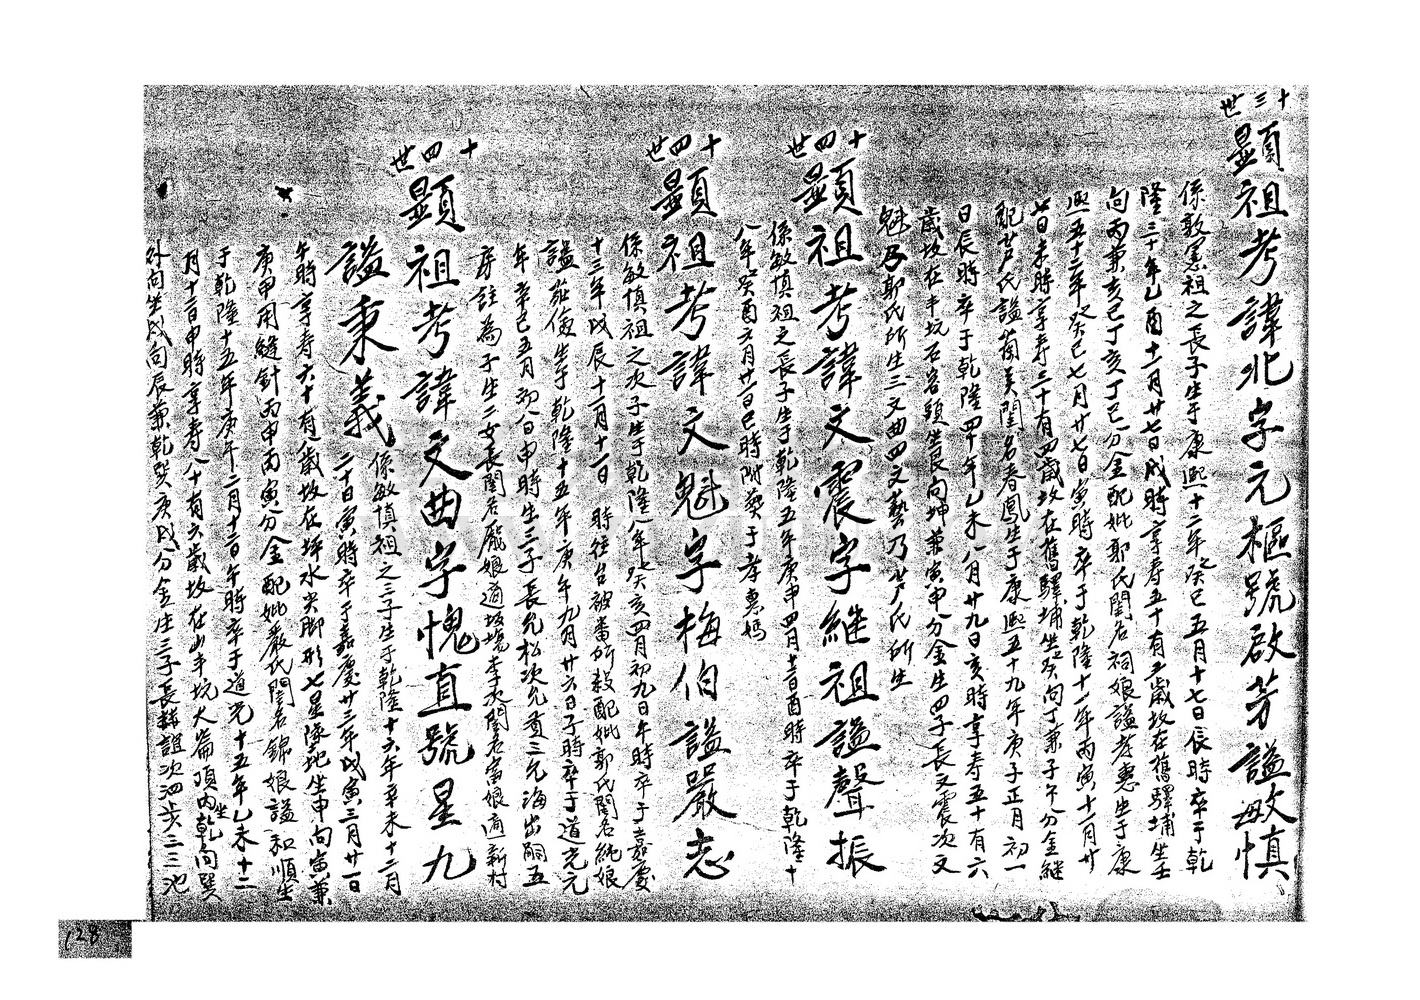 十三世
顯祖考諱北字元樞號啟芳謚敏慎
係敦憲祖之長子生于康熙十二年癸巳五月十七日辰時卒于乾
隆三十年乙酉十一月廿七日戌時享寿五十有三歲坟在舊驛埔坐壬
向丙兼亥己丁亥丁巳分金配妣郭氏閨名祠娘謚孝惠生于康
熙五十二年癸巳七月廿七日寅時卒于乾隆十一年丙寅十一月廿
七日未時享寿三十有四歲坟在舊驛埔坐癸向丁兼子午分金継
配芦氏謚蘭美閨名春鳳生于康熙五十九年庚子正月初一
日辰時卒于乾隆四十年乙未八月廿九日亥時享寿五十有六
歲坟在半坑石客頭坐艮向坤兼寅申分金生四子長文震次文
魁乃郭氏所生三文曲四文藝乃芦氏所生
十四世
顯祖考諱文震字継祖謚聲振
係敏慎祖之長子生于乾隆五年庚申四月十二日酉時卒于乾隆十
八年癸酉六月廿一日巳時附葬于孝惠媽
十四世
顯祖考諱文魁字梅伯謚嚴志
係敏慎祖之次子生于乾隆八年癸亥四月初九日午時卒于嘉慶
十三年戊辰十一月十一日 時往台被番所殺配妣郭氏閨名純娘
謚莊儉生于乾隆十五年庚午九月廿六日子時卒于道光元
年辛巳五月初八日申時生三子長允松次允貢三允海出嗣五
房註為子生二女長閨名嚴娘適坂塲李次閨名富娘適新村
十四世
顯祖考諱文曲字愧直號星九
謚秉義
係敏慎祖之三子生于乾隆十六年辛未十二月
二十日寅時卒于嘉慶廿三年戊寅三月廿一日
午時享寿六十有八歲坟在坪水尖脚形七星墜地坐申向寅兼
庚甲用縫針丙申丙寅分金配妣嚴氏閨名錦娘謚和順生
于乾隆十五年庚午二月十三日午時卒于道光十五年乙未十二
月十二日申時享寿八十有六歲坟在山半坑大崙頂內坐乾向巽
外向坐戌向辰兼乾巽庚戌分金生三子長赫誼次泗步三三池
128